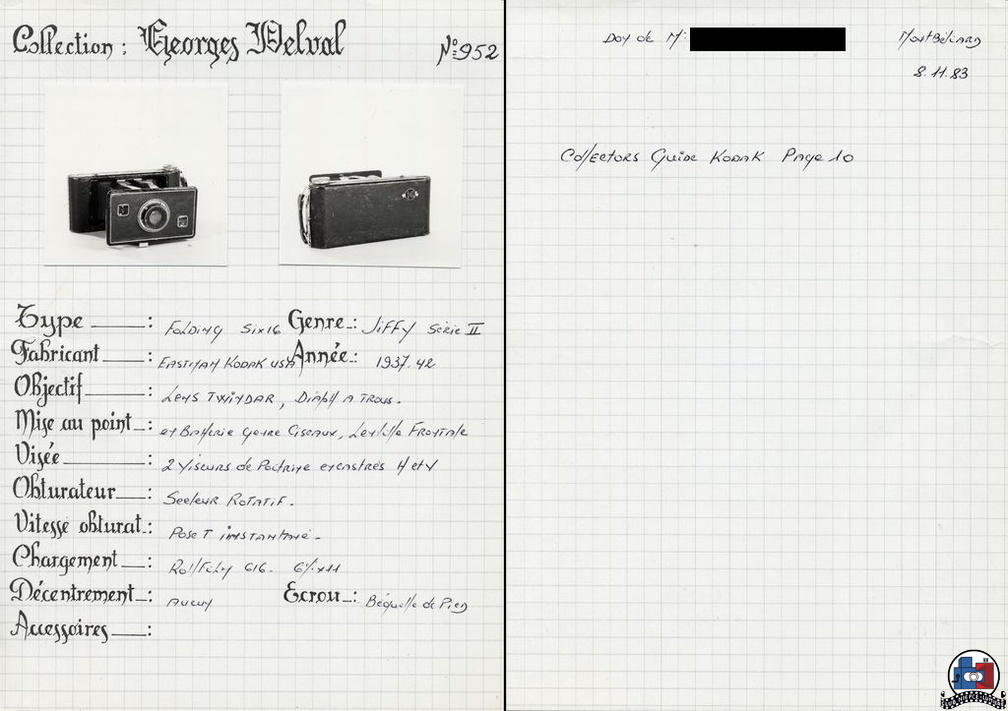 Collection : Georges Delval
N° 952
Type : Folding Six 16 Genre : Jiffy Série II
Fabricant : Eastman Kodak USA Année : 1937.42
Objectif : Lens Twindar, Diaph a Trous.
Mise au point : et Batterie genre Ciseaux, Lentille Frontale
Visée : 2 Viseurs de Poitrine encastrés H et V
Obturateur : Secteur Rotatif.
Vitesse obturat. : Pose T instantané.
Chargement : Roll Film 616. 6½x11
Décentrement : Aucun Ecrou : Béquille de Pied
Accessoires :
Don de Mr:
Montbéliard
8.11.83
Collectors Guide Kodak Page 10